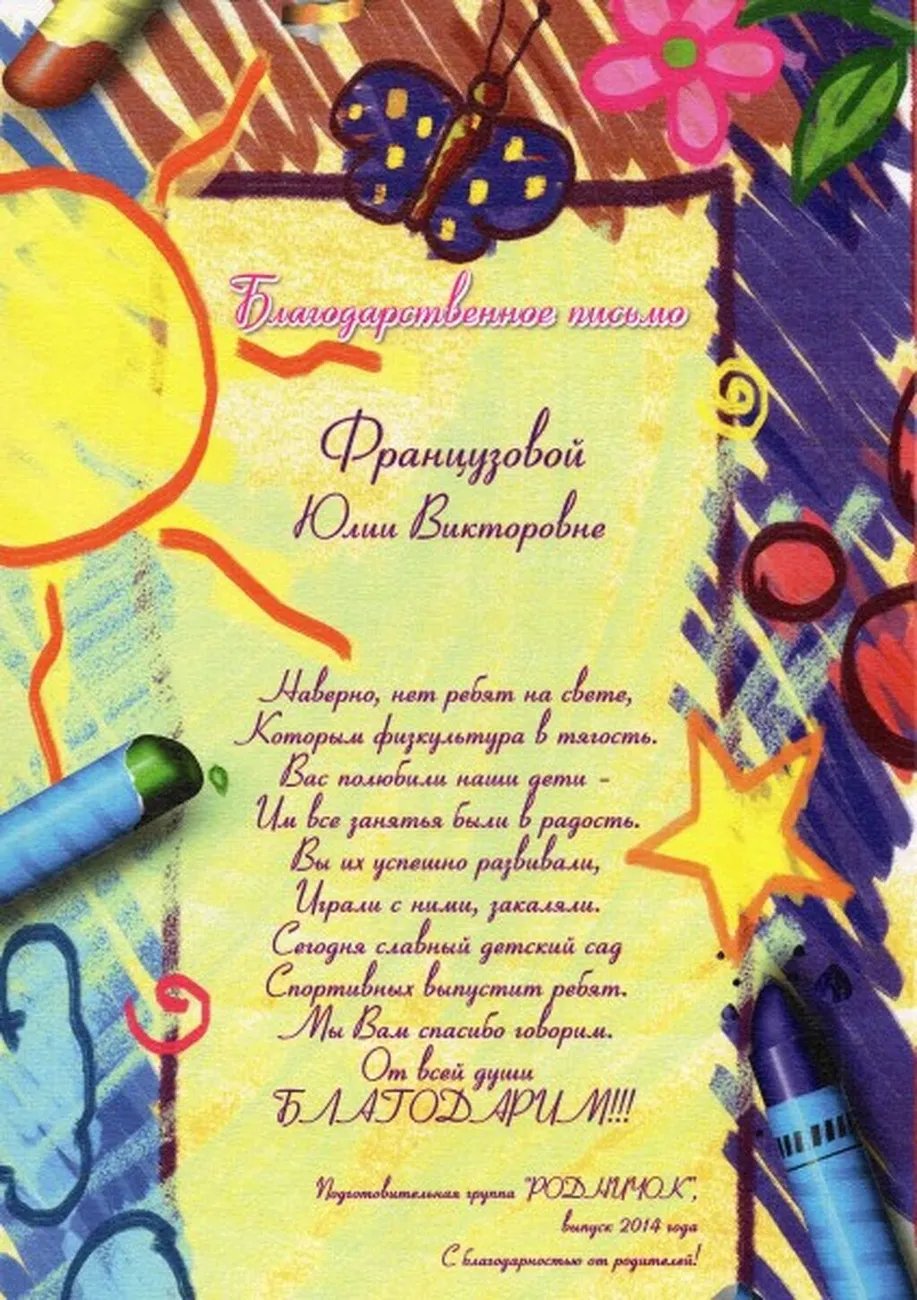 Благодарственное письмо
Французовой
Юлии Викторовне
Наверно, нет ребят на свете,
Которым физкультура в тягость.
Вас полюбили наши дети -
Им все занятья были в радость.
Вы их успешно развивали,
Играли с ними, закаляли.
Сегодня славный детский сад
Спортивных выпустит ребят.
Мы Вам спасибо говорим.
От всей души
БЛАГОДАРИМ!!!
Подготовительная группа "РОДНИЧОК",
выпуск 2014 года
С благодарностью от родителей!